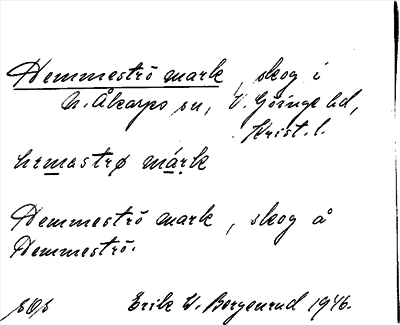 Hemmeströ mark, skog i
N. Åkarps sn, V. Göinge hd,
Krist. l.
hemastrø márk
Hemmeströ mark, skog å
Hemmeströ.
Erik W. Bergenrud 1946.